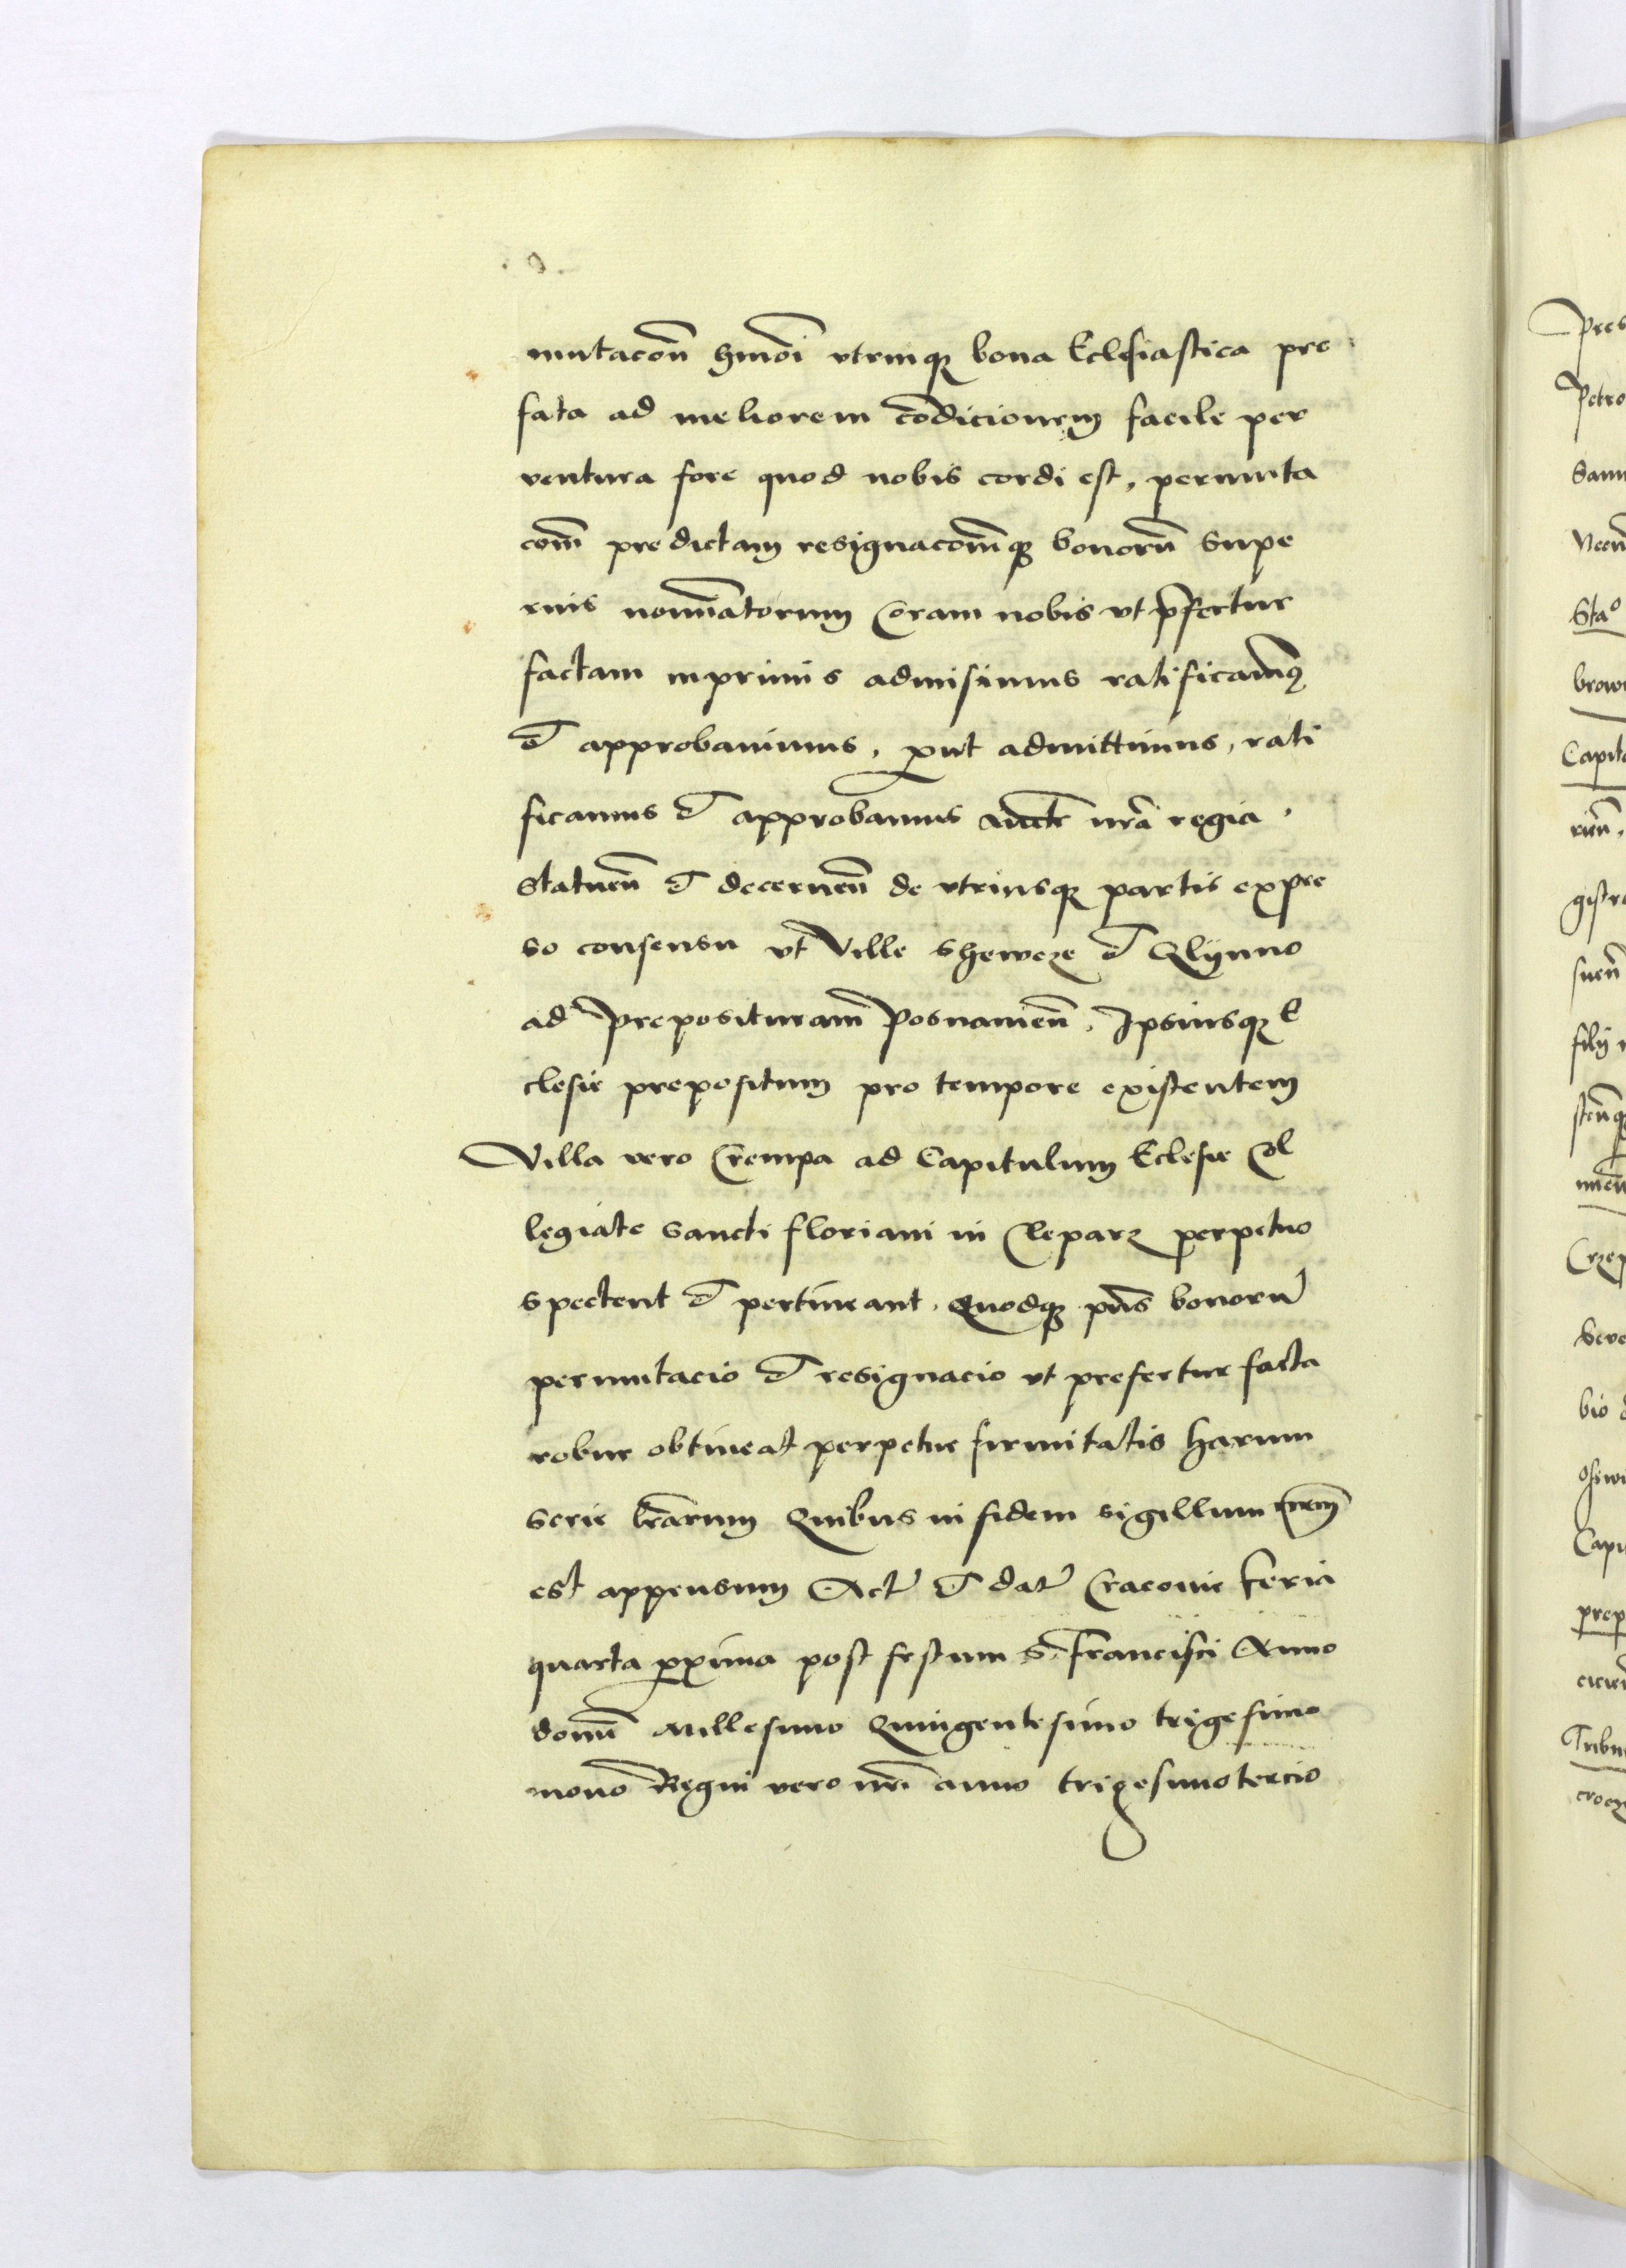 mutacōn hmōi vtrinqꝫ bona Eclesiastica pre
fata ad meliorem cōdicionem facile per
ventura fore quod nobis cordi est, permuta
cōm predictam resignacōmqꝫ bonorū supe
rius nominatorum Coram nobis vt p̄fertur
factam inprimis admisimus ratificavimꝰ
et approbavimus, ꝓut admittimus, rati
ficamus et approbamus auctē nrā regia.
Statuen̄ et decernen̄ de vtriusqꝫ partis expre
so consensu vt Ville Sheweze et Glynno
ad Preposituram Posnanien̄. Ipsiusqꝫ E
clesie prepositum pro tempore existentem
Villa vero Crempa ad Capitulum Eclesie Col
legiate Sancti floriani in Clepars perpetuo
spectent et pertineant. Quodqꝫ pn̄s bonorū
permutacio et resignacio vt prefertur facta
robur obtineat perpetue firmitatis harum
serie lr̄arum Quibus in fidem sigillum nr̄m
est appensum Act et dat Cracovie feria
quarta ꝓxima post festum S. Francisci Anno
domī Millesimo Quingentesimo trigesimo
nono Regni vero nr̄i anno trigesimotercio
Pres
Petro
Sta⁰
brow
Capit
gistr
Crzep
bio
Capi
prep
Tribu